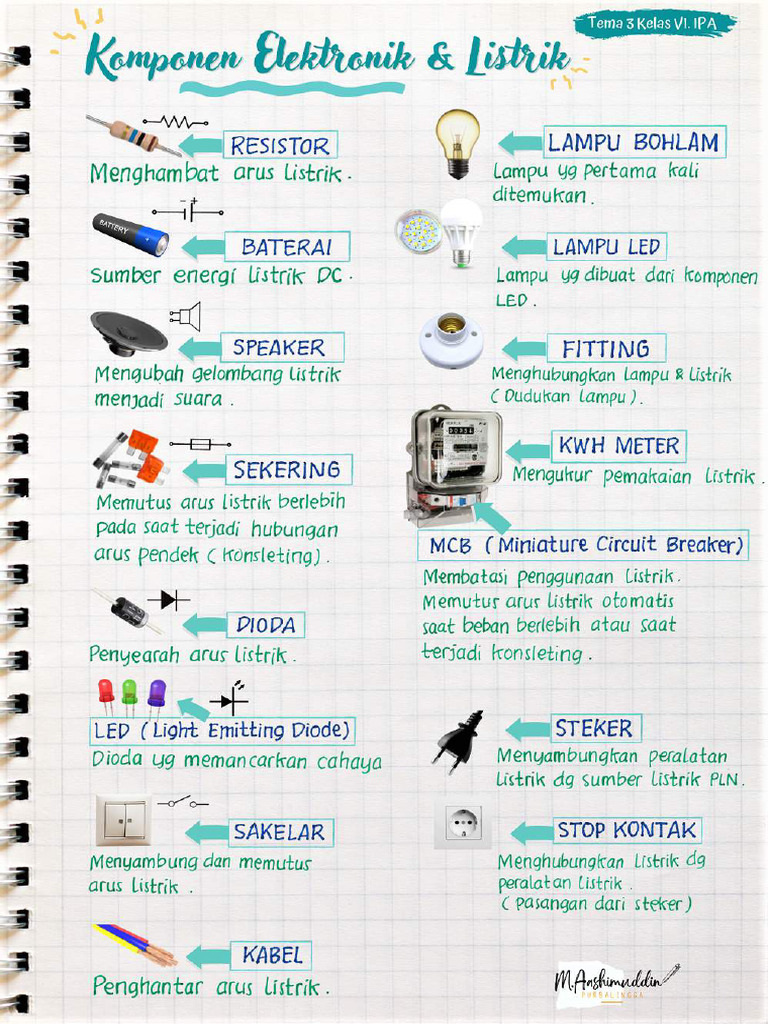 Tema 3 Kelas VI. IPA
Komponen Elektronik & Listrik
RESISTOR
Menghambat arus listrik.
BATTERY
BATERAI
Sumber energi listrik DC.
SPEAKER
Mengubah gelombang listrik
menjadi suara.
SEKERING
Memutus arus listrik berlebih
pada saat terjadi hubungan
arus pendek (Konsleting).
DIODA
Penyearah arus listrik.
LED (Light Emitting Diode)
Dioda yg memancarkan cahaya
SAKELAR
Menyambung dan memutus
arus listrik.
KABEL
Penghantar arus listrik.
LAMPU BOHLAM
Lampu yg pertama kali
ditemukan.
LAMPU LED
Lampu yg dibuat dari komponen
LED.
FITTING
Menghubungkan lampu & listrik
(Dudukan lampu).
KWH METER
Mengukur pemakaian listrik.
MCB (Miniature Circuit Breaker)
Membatasi penggunaan listrik.
Memutus arus listrik otomatis
saat beban berlebih atau saat
terjadi konsleting.
STEKER
Menyambungkan peralatan
listrik dg sumber listrik PLN.
STOP KONTAK
Menghubungkan listrik dg
peralatan listrik.
(pasangan dari steker)
M.Anshimuddin
PURBALINGGA